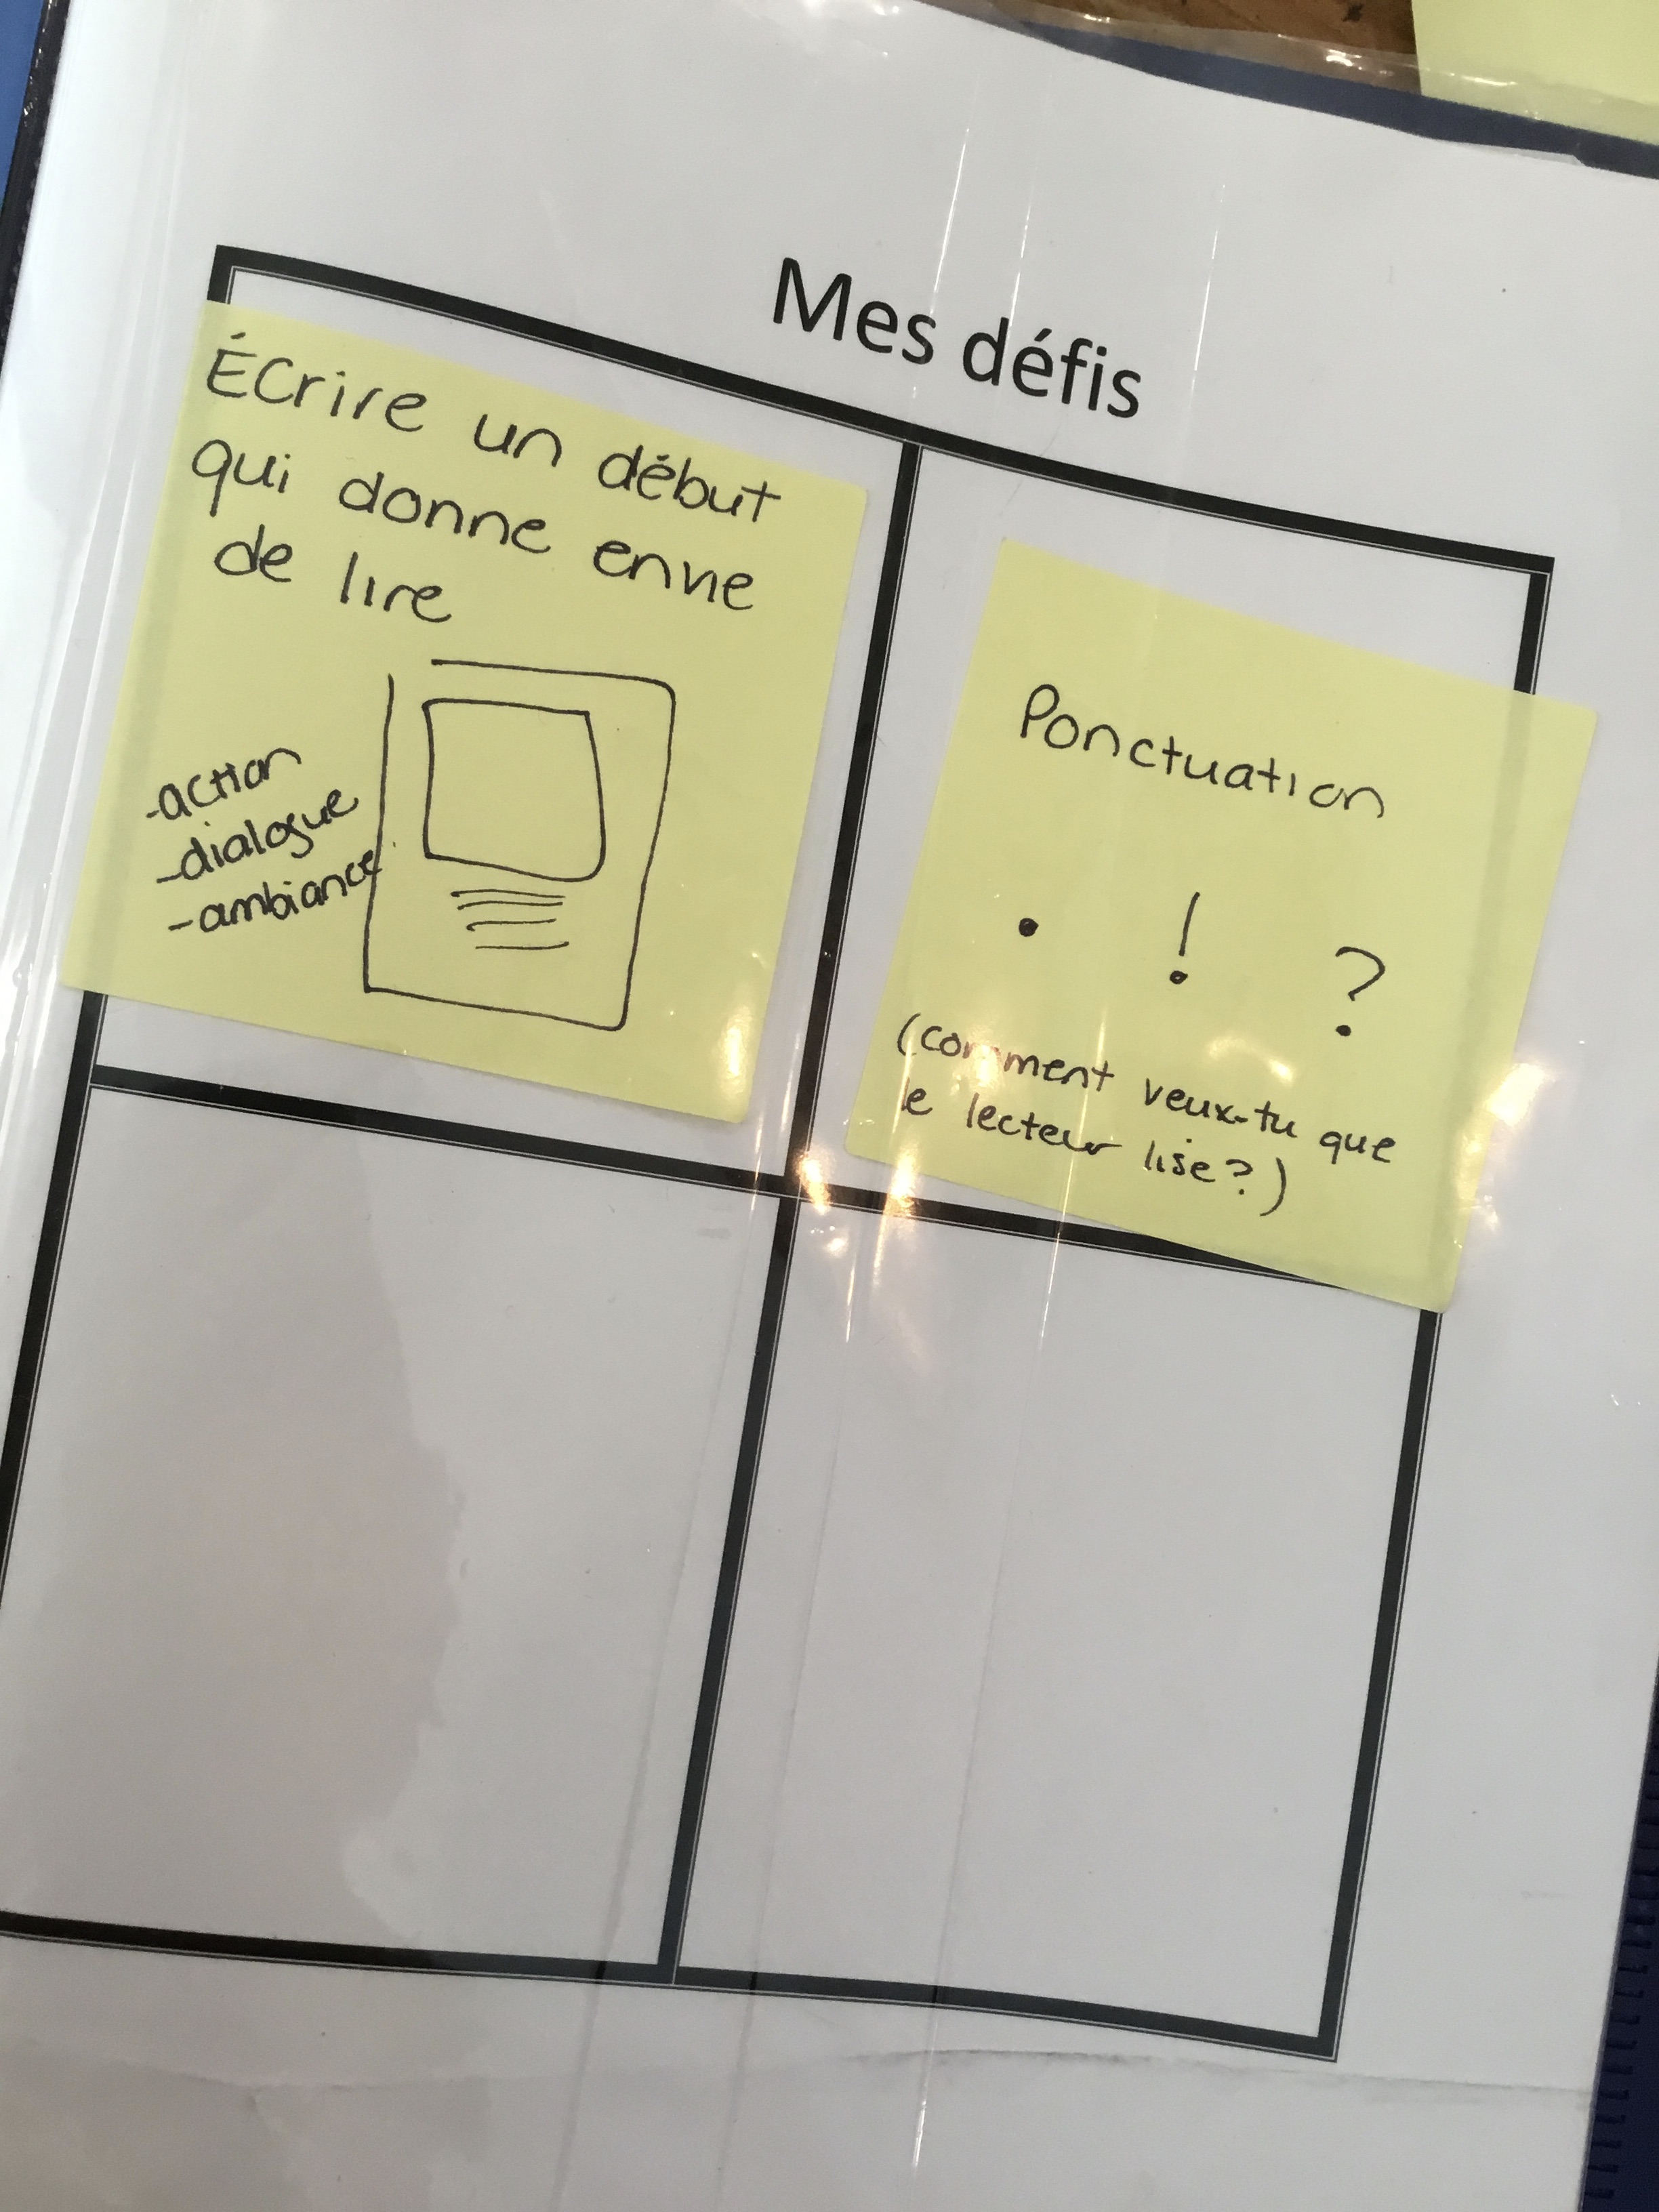 Mes défis
Écrire un début
qui donne envie
de lire
-action
-dialogue
-ambiance
Ponctuation
. ! ?
(comment veux-tu que
le lecteur lise?)